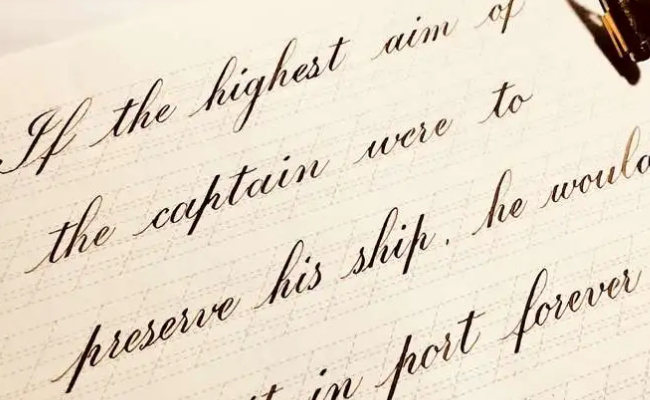 If the highest aim of
the captain were to
preserve his ship, he would
in port forever